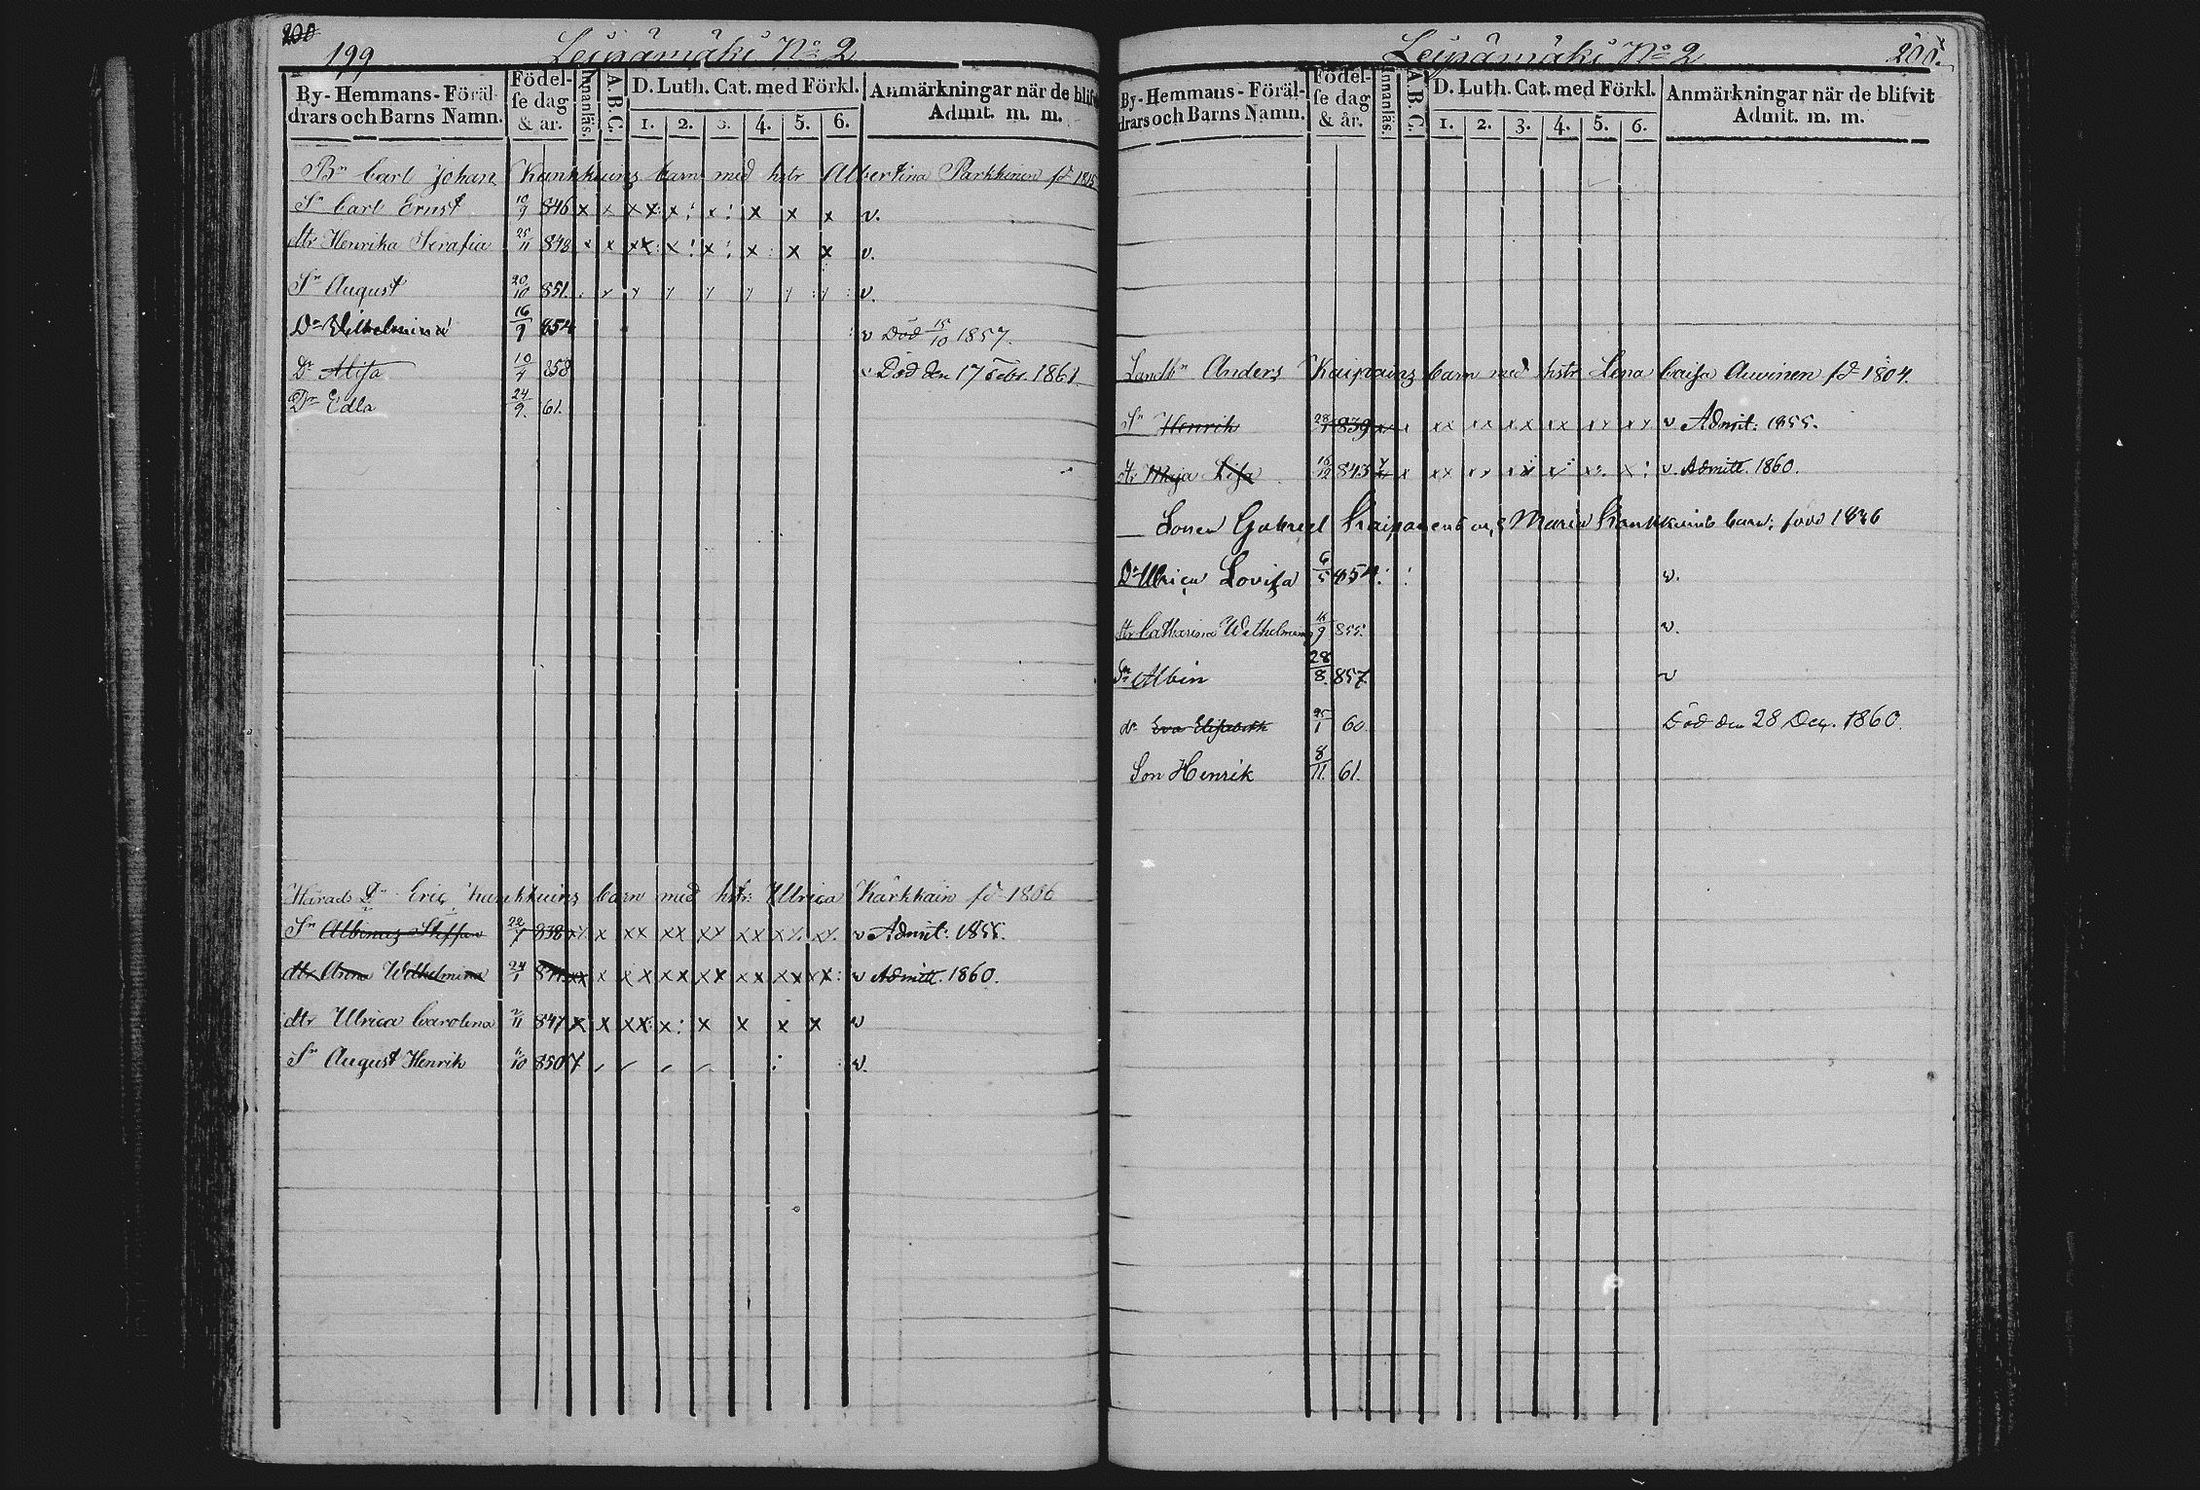 200
199 Leipämäki No 2
By-Hemmans-Föräl-
drars och Barns Namn.
Födel-
se dag
& år.
Innanläs.
A. B. C.
D. Luth. Cat. med Förkl.
1. 2. 3. 4. 5. 6.
Anmärkningar när de blifv
Admit. m. m.
Bn Carl Johan Kankkuins barn med hstr Albertina Parkkinen fd 1815
Sn Carl Ernst 10/9 846 x x xx: x: x: x x x v.
dtr Henrika Serafia 25/11 848 x x xx: x: x: x: x x v.
Sn August 20/10 851. v.
Dr Wilhelmina 16/9 854 v Död 15/10 1857.
Dr Alisa 10/4 858 Död den 17 Febr. 1861
Dr Edla 24/9. 61.
Härads Eric Kankkuins barn med hstr: Ulrica Karkkain fd 1806
Sn Albinus Steffan 22/7 838 x xx xx xx xx v Admit: 1855.
dtr Anna Wilhelmina 24/1 841 xx x xx xx xx xx xx v Admitt. 1860.
dtr Ulrica Carolina 2/11 847 x x xx: x: x x x x v
Sn August Henrik 11/10 850 v.
Leipämäki No 2 200.
By-Hemmans-Föräl-
drars och Barns Namn.
Födel-
se dag
& år.
Innanläs.
A. B. C.
D. Luth. Cat. med Förkl.
1. 2. 3. 4. 5. 6.
Anmärkningar när de blifvit
Admit. m. m.
Anders Kaipains barn med hstr Lena Caisa Auvinen fd 1804.
Sn Henrik 28/1 839 x x xx xx xx xx xx xx v Admit: 1855.
dtr Maja Lisa 15/12 843 x xx v Admitt. 1860.
Sonen Gabriel Kaipanens och Maria Kankkuins barn; född 1836
Dr Ulrica Lovisa 6/5 854. v.
dtr Catharina Wilhelmina 15/9 855. v.
Sn Albin 28/8. 857. v
dr Eva Elisabeth 25/1 60 Död den 28 Dec. 1860.
Son Henrik 8/11. 61.